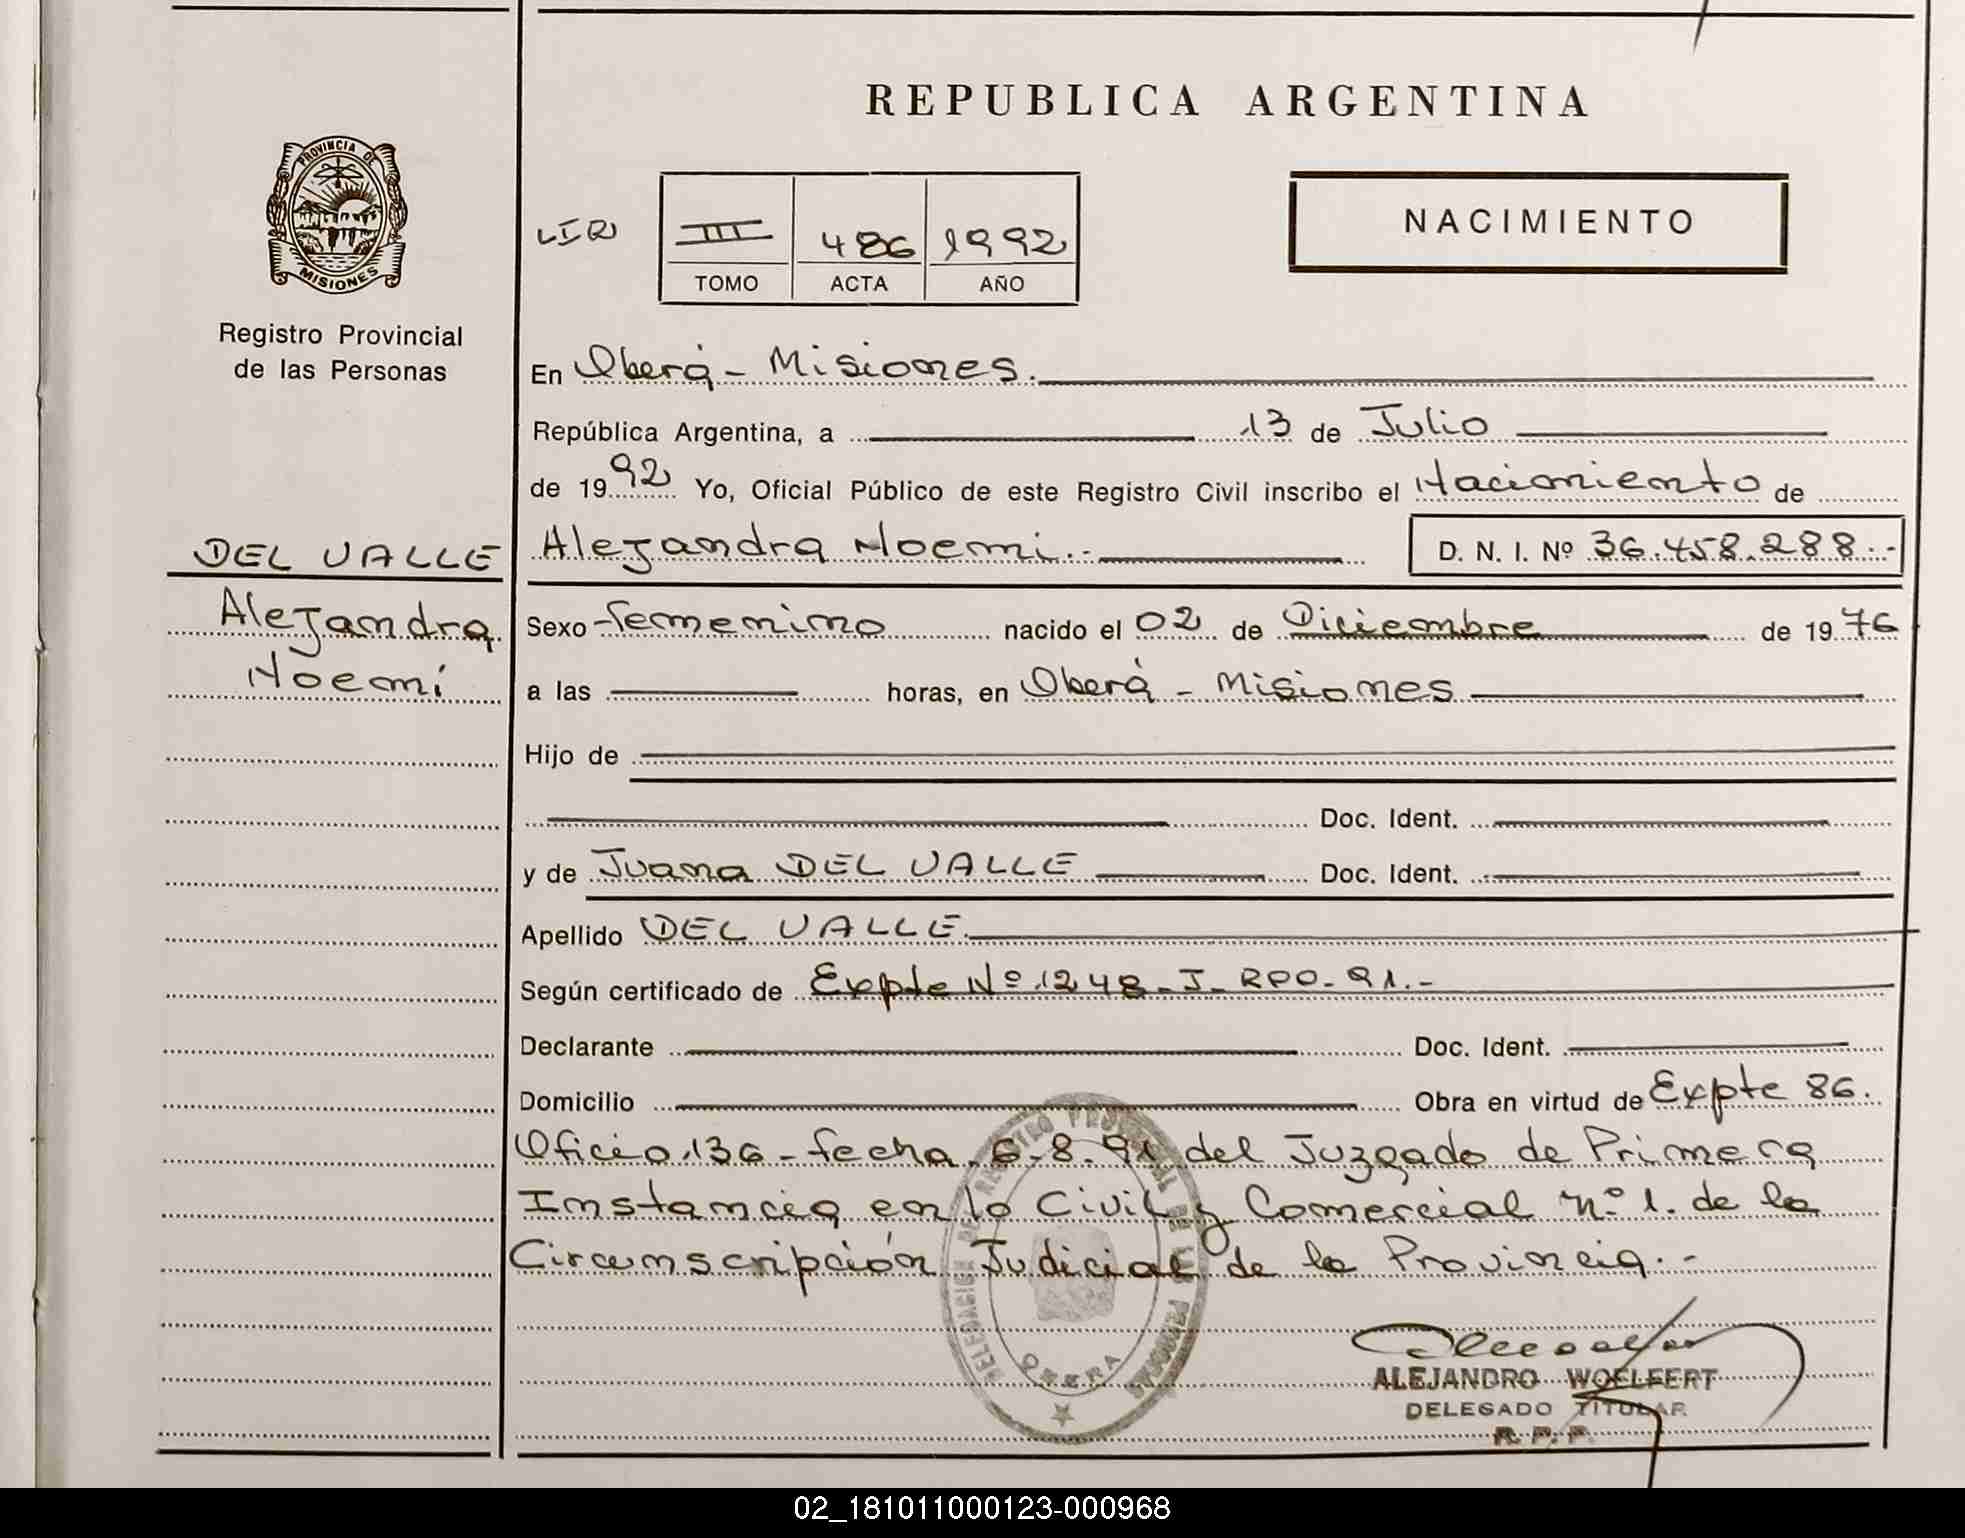 REPUBLICA ARGENTINA
PROVINCIA DE
MISIONES
Registro Provincial
de las Personas
III 486 1992
TOMO ACTA AÑO
NACIMIENTO
En Oberá - Misiones.
República Argentina, a 13 de Julio
de 1992 Yo, Oficial Público de este Registro Civil inscribo el Nacimiento de
DEL VALLE
Alejandra
Noemí
Alejandra Noemi.- D. N. I. Nº 36.458.288.-
Sexo femenino nacido el 02 de Diciembre de 1976
a las horas, en Oberá - Misiones
Hijo de
Doc. Ident.
y de Juana DEL VALLE Doc. Ident.
Apellido DEL VALLE.
Según certificado de Expte Nº 1248-J-RPO-91.-
Declarante Doc. Ident.
Domicilio Obra en virtud de Expte 86.
Oficio 136 - fecha 6-8-91 del Juzgado de Primera
Instancia en lo Civil y Comercial nº 1. de la
Circunscripción Judicial de la Provincia.-
DELEGACION DEL REGISTRO PROVINCIAL DE LAS PERSONAS
OBERA
ALEJANDRO WOELFERT
DELEGADO TITULAR
R. P. P.
02_181011000123-000968